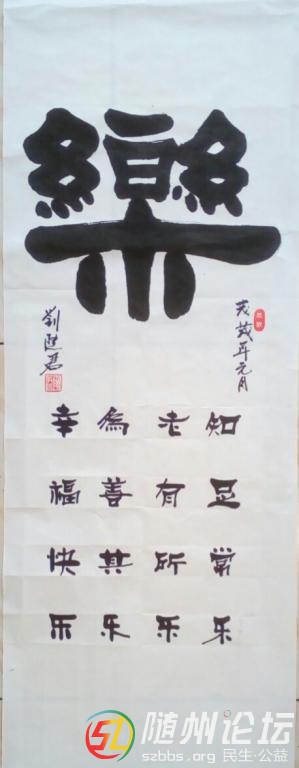 樂
戊戌年元月
劉
知足常乐
老有所乐
為善其乐
幸福快乐
随州论坛
szbbs.org 民生·公益